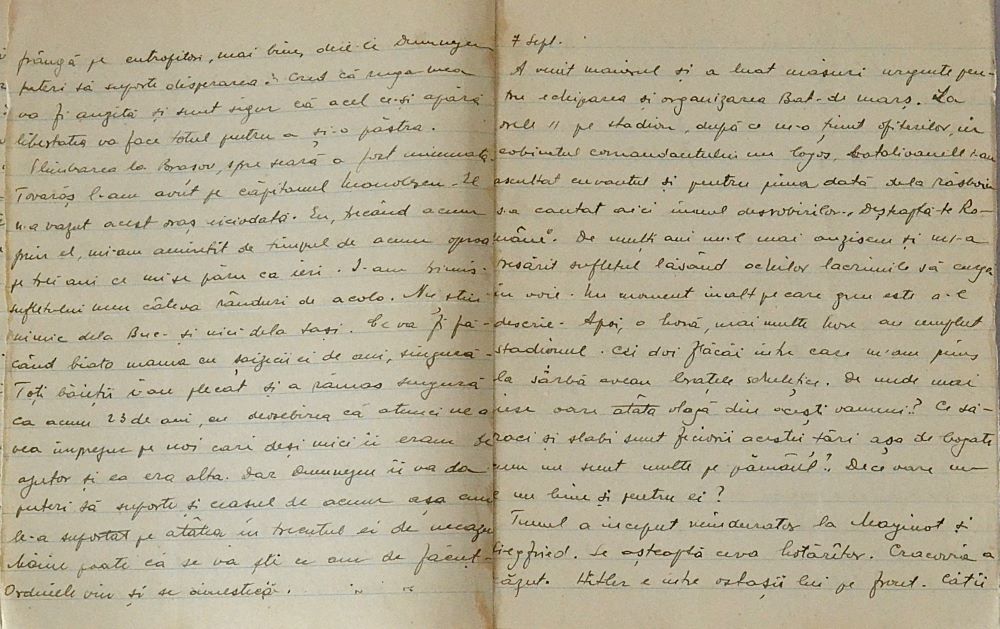 frângă pe cutropitori, mai bine, deie-le Dumnezeu
puteri să suporte disperarea. Cred că ruga mea
va fi auzită și sunt sigur că acel ce-și apără
libertatea va face totul pentru a și-o păstra.
Plimbarea la Brașov, spre seară a fost minunată.
Tovarăș l-am avut pe căpitanul Manolescu. El
n-a văzut acest oraș niciodată. Eu, trecând acum
prin el, mi-am amintit de timpul de acum aproa
pe trei ani ce mi se păru ca ieri. I-am trimis
sufletului meu câteva rânduri de acolo. Nu știu
nimic dela Buc. și nici dela Iași. Ce va fi fă-
când biata mama cu șaizecii ei de ani, singură.
Toți băieții i-au plecat și a rămas singură
ca acum 23 de ani, cu deosebirea că atunci ne a
vea împrejur pe noi cari deși mici îi eram de
ajutor și ea era alta. Dar Dumnezeu îi va da
puteri să suporte și ceasul de acum așa cum
le-a suportat pe atâtea în trecutul ei de necazuri
Mâine poate că se va ști ce am de făcut.
Ordinele vin și se amestecă.
7 Sept.
A venit maiorul și a luat măsuri urgente pen-
tru echiparea și organizarea Bat. de marș. La
orele 11 pe stadion, după ce ne-a ținut ofițerilor, în
cabinetul comandantului un logos, batalioanele i-au
ascultat cuvântul și pentru prima dată dela războiu
s-a cântat aici imnul desrobirilor „Deșteaptă-te Ro-
mâne”. De mulți ani nu-l mai auzisem și mi-a
tresărit sufletul lăsând ochilor lacrimile să curgă
în voie. Un moment înalt pe care greu este a-l
descrie. Apoi, o horă, mai multe hore au umplut
stadionul. Cei doi flăcăi între care m-am prins
la sârbă aveau brațele scheletice. De unde mai
iese oare atâta vlagă din acești oameni? Ce să-
raci și slabi sunt feciorii acestei țări așa de bogate
cum nu sunt multe pe pământ? De ce oare nu
un bine și pentru ei?
Tunul a început neîndurător la Maginot și
Siegfried. Se așteaptă ceva hotărâtor. Cracovia a
căzut. Hitler e între ostașii lui pe front. Câtii